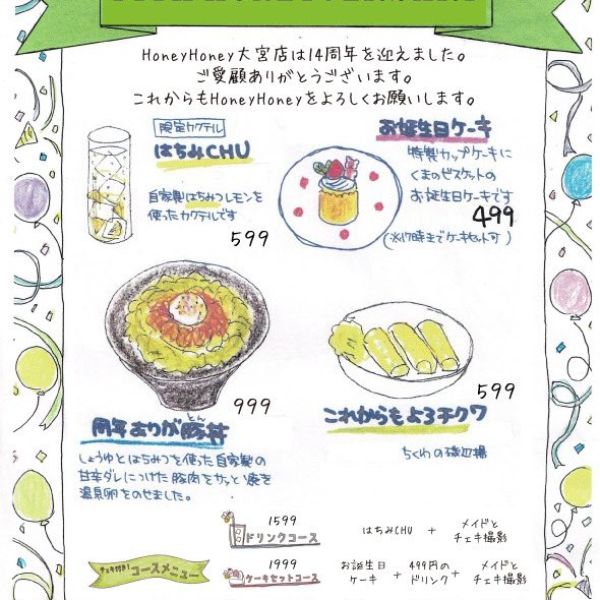 HoneyHoney大宮店は14周年を迎えました。
ご愛顧ありがとうございます。
これからもHoneyHoneyをよろしくお願いします。
限定カクテル
はちみCHU
自家製はちみつレモンを
使ったカクテルです
599
お誕生日ケーキ
特製カップケーキに
くまのビスケットの
お誕生日ケーキです
499
(※17時までケーキセット可)
999
周年ありが豚丼
とん
しょうゆとはちみつを使った自家製の
甘辛ダレにつけた豚肉をサッと焼き
温泉卵をのせました。
599
これからもよろチクワ
ちくわの磯辺揚
1599
ドリンクコース
はちみCHU + メイドと
チェキ撮影
チェキ付き!コースメニュー
1999
ケーキセットコース
お誕生日
ケーキ + 499円の
ドリンク + メイドと
チェキ撮影